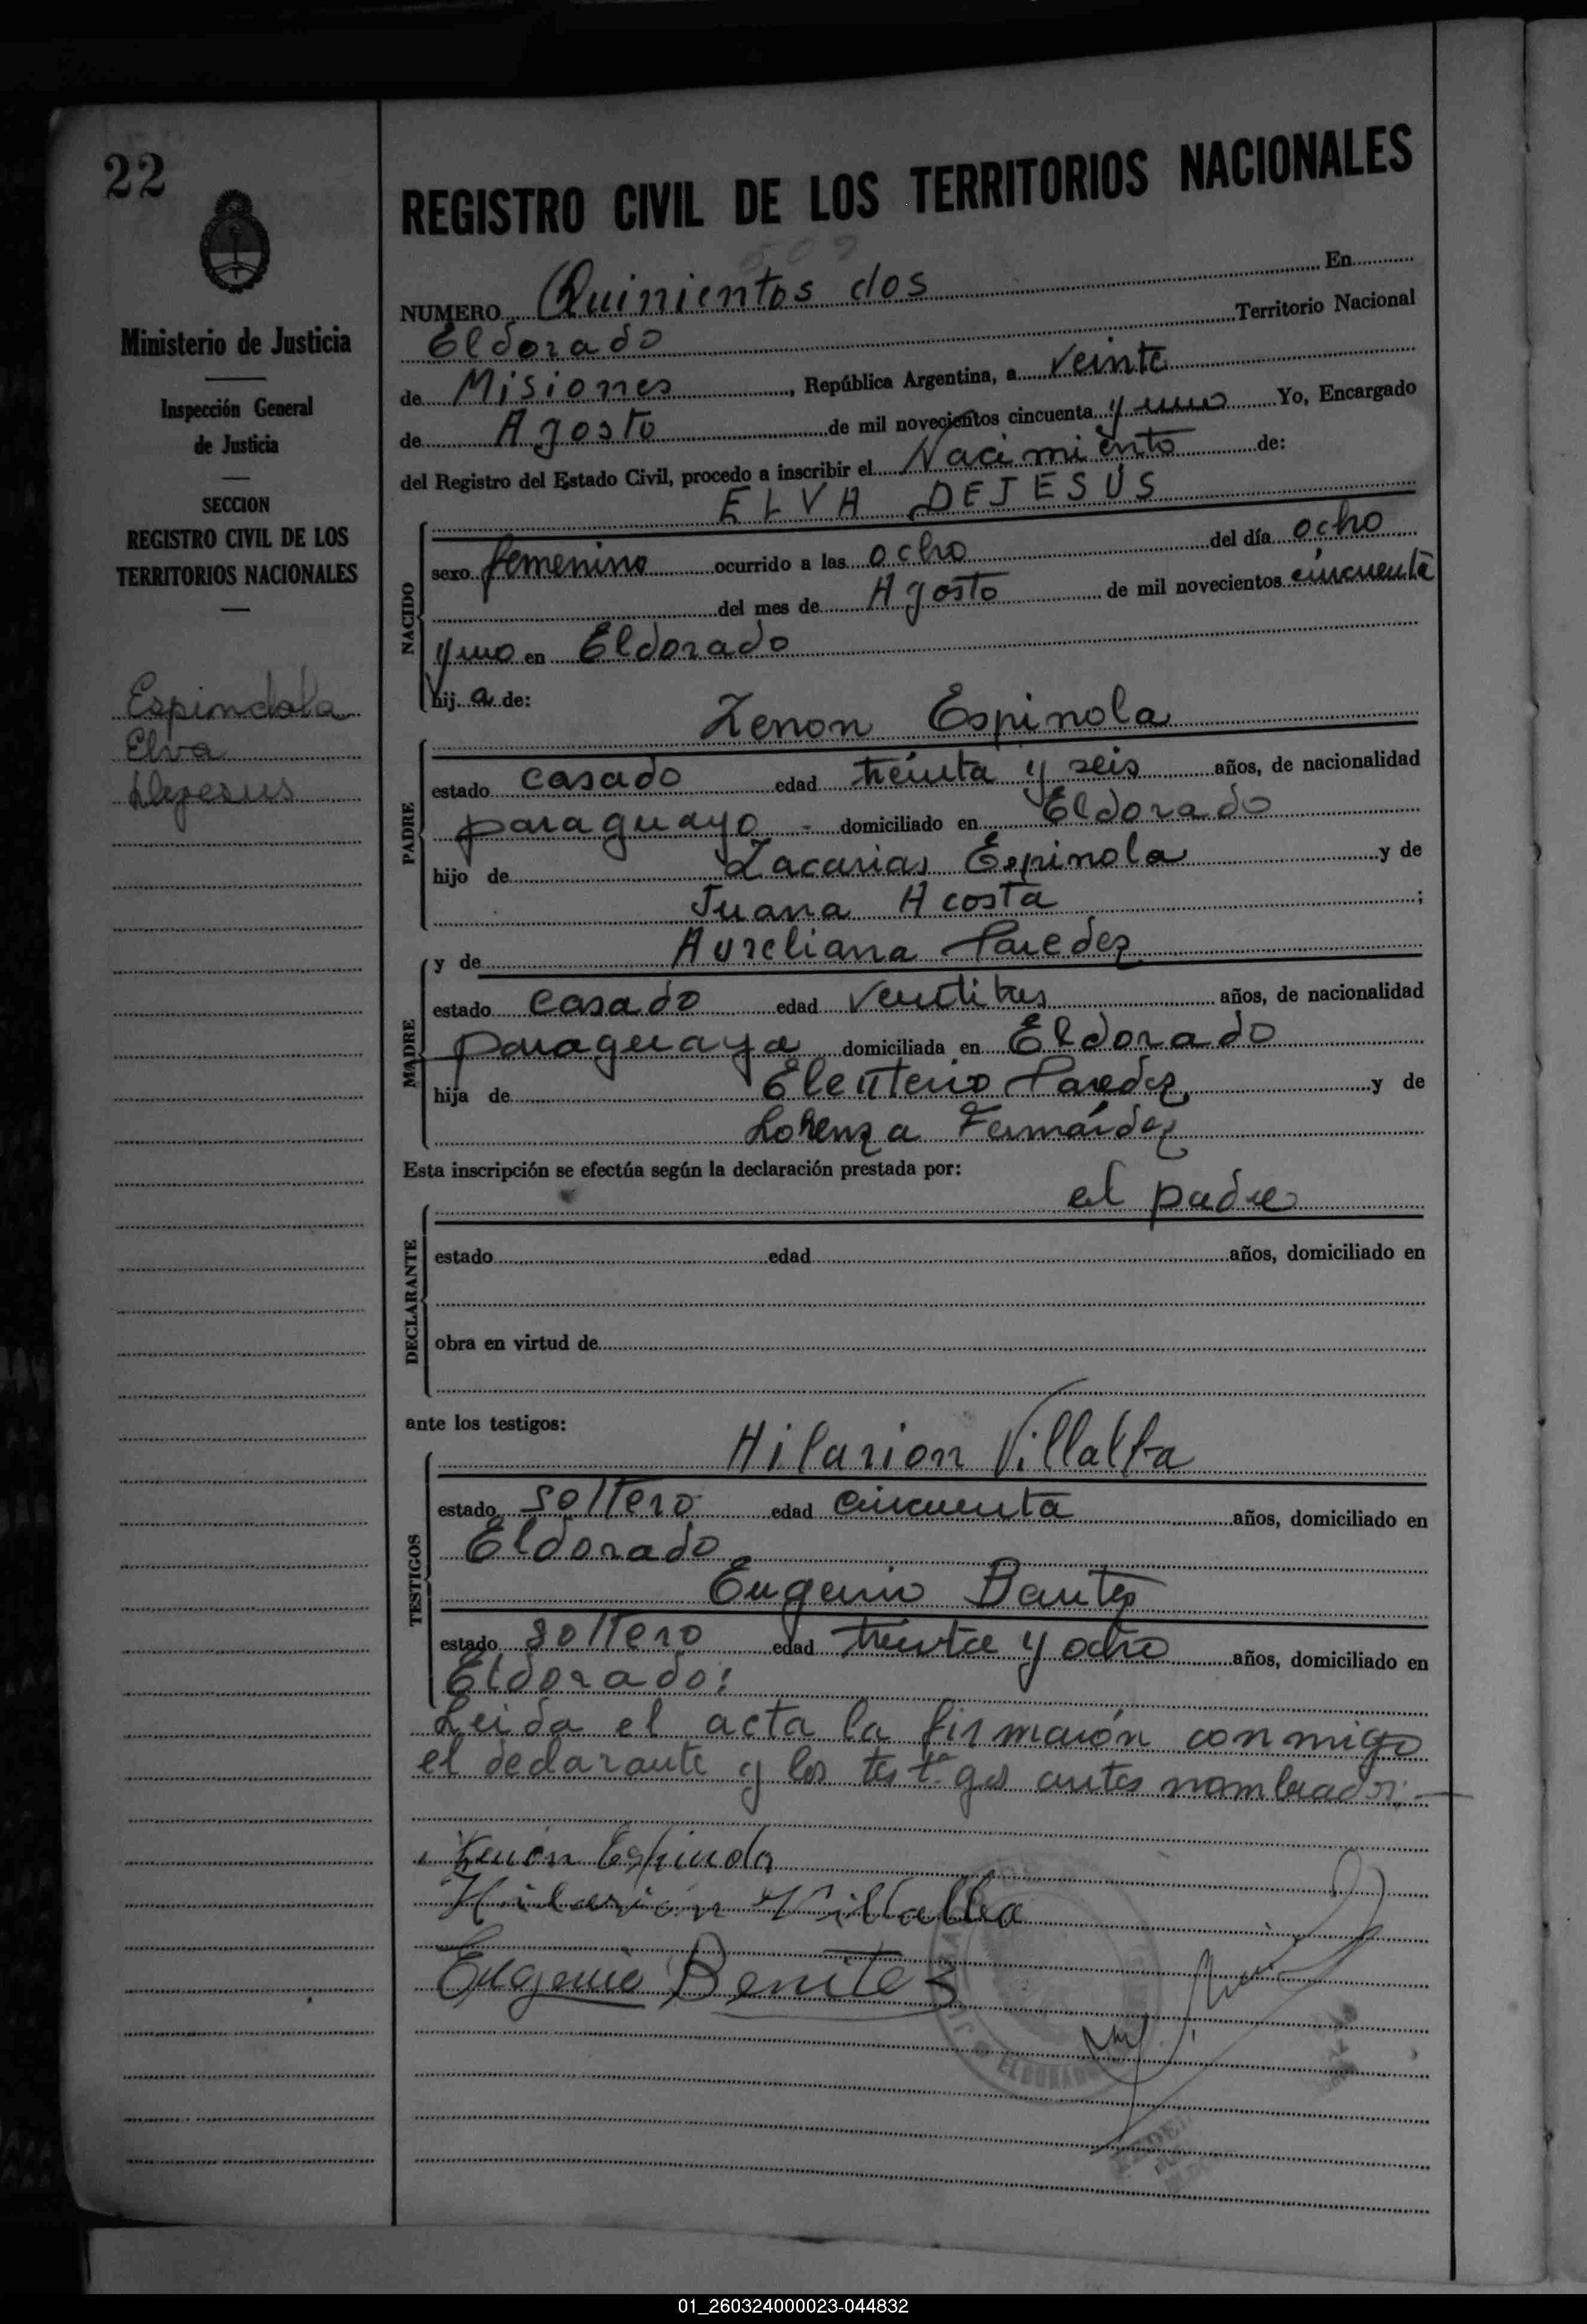 22
REGISTRO CIVIL DE LOS TERRITORIOS NACIONALES
Ministerio de Justicia
Inspección General
de Justicia
SECCION
REGISTRO CIVIL DE LOS
TERRITORIOS NACIONALES
Espindola
Elva
Dejesus
502
NUMERO Quinientos dos En
Eldorado Territorio Nacional
de Misiones, República Argentina, a veinte
de Agosto de mil novecientos cincuenta y uno Yo, Encargado
del Registro del Estado Civil, procedo a inscribir el Nacimiento de:
ELVA DEJESÚS
NACIDO
sexo femenino ocurrido a las ocho del día ocho
del mes de Agosto de mil novecientos cincuenta
y uno en Eldorado
hij a de:
Zenon Espinola
PADRE
estado casado edad treinta y seis años, de nacionalidad
paraguayo - domiciliado en Eldorado
hijo de Zacarias Espinola y de
Juana Acosta ;
y de Aureliana Paredez
MADRE
estado casado edad ventitres años, de nacionalidad
paraguaya domiciliada en Eldorado
hija de Eleuterio Paredez y de
Lorenza Fernández
Esta inscripción se efectúa según la declaración prestada por:
el padre
DECLARANTE
estado edad años, domiciliado en
obra en virtud de
ante los testigos:
Hilarion Villalba
TESTIGOS
estado soltero edad cincuenta años, domiciliado en
Eldorado
Eugenio
estado soltero edad treinta y ocho años, domiciliado en
Eldorado:
Leida el acta la firmarón conmigo
el declarante y los testigos antes nombrados.-
Zenón Espinola
Hilarión Villalba
Eugenio Benitez
ELDORADO
01_260324000023-044832